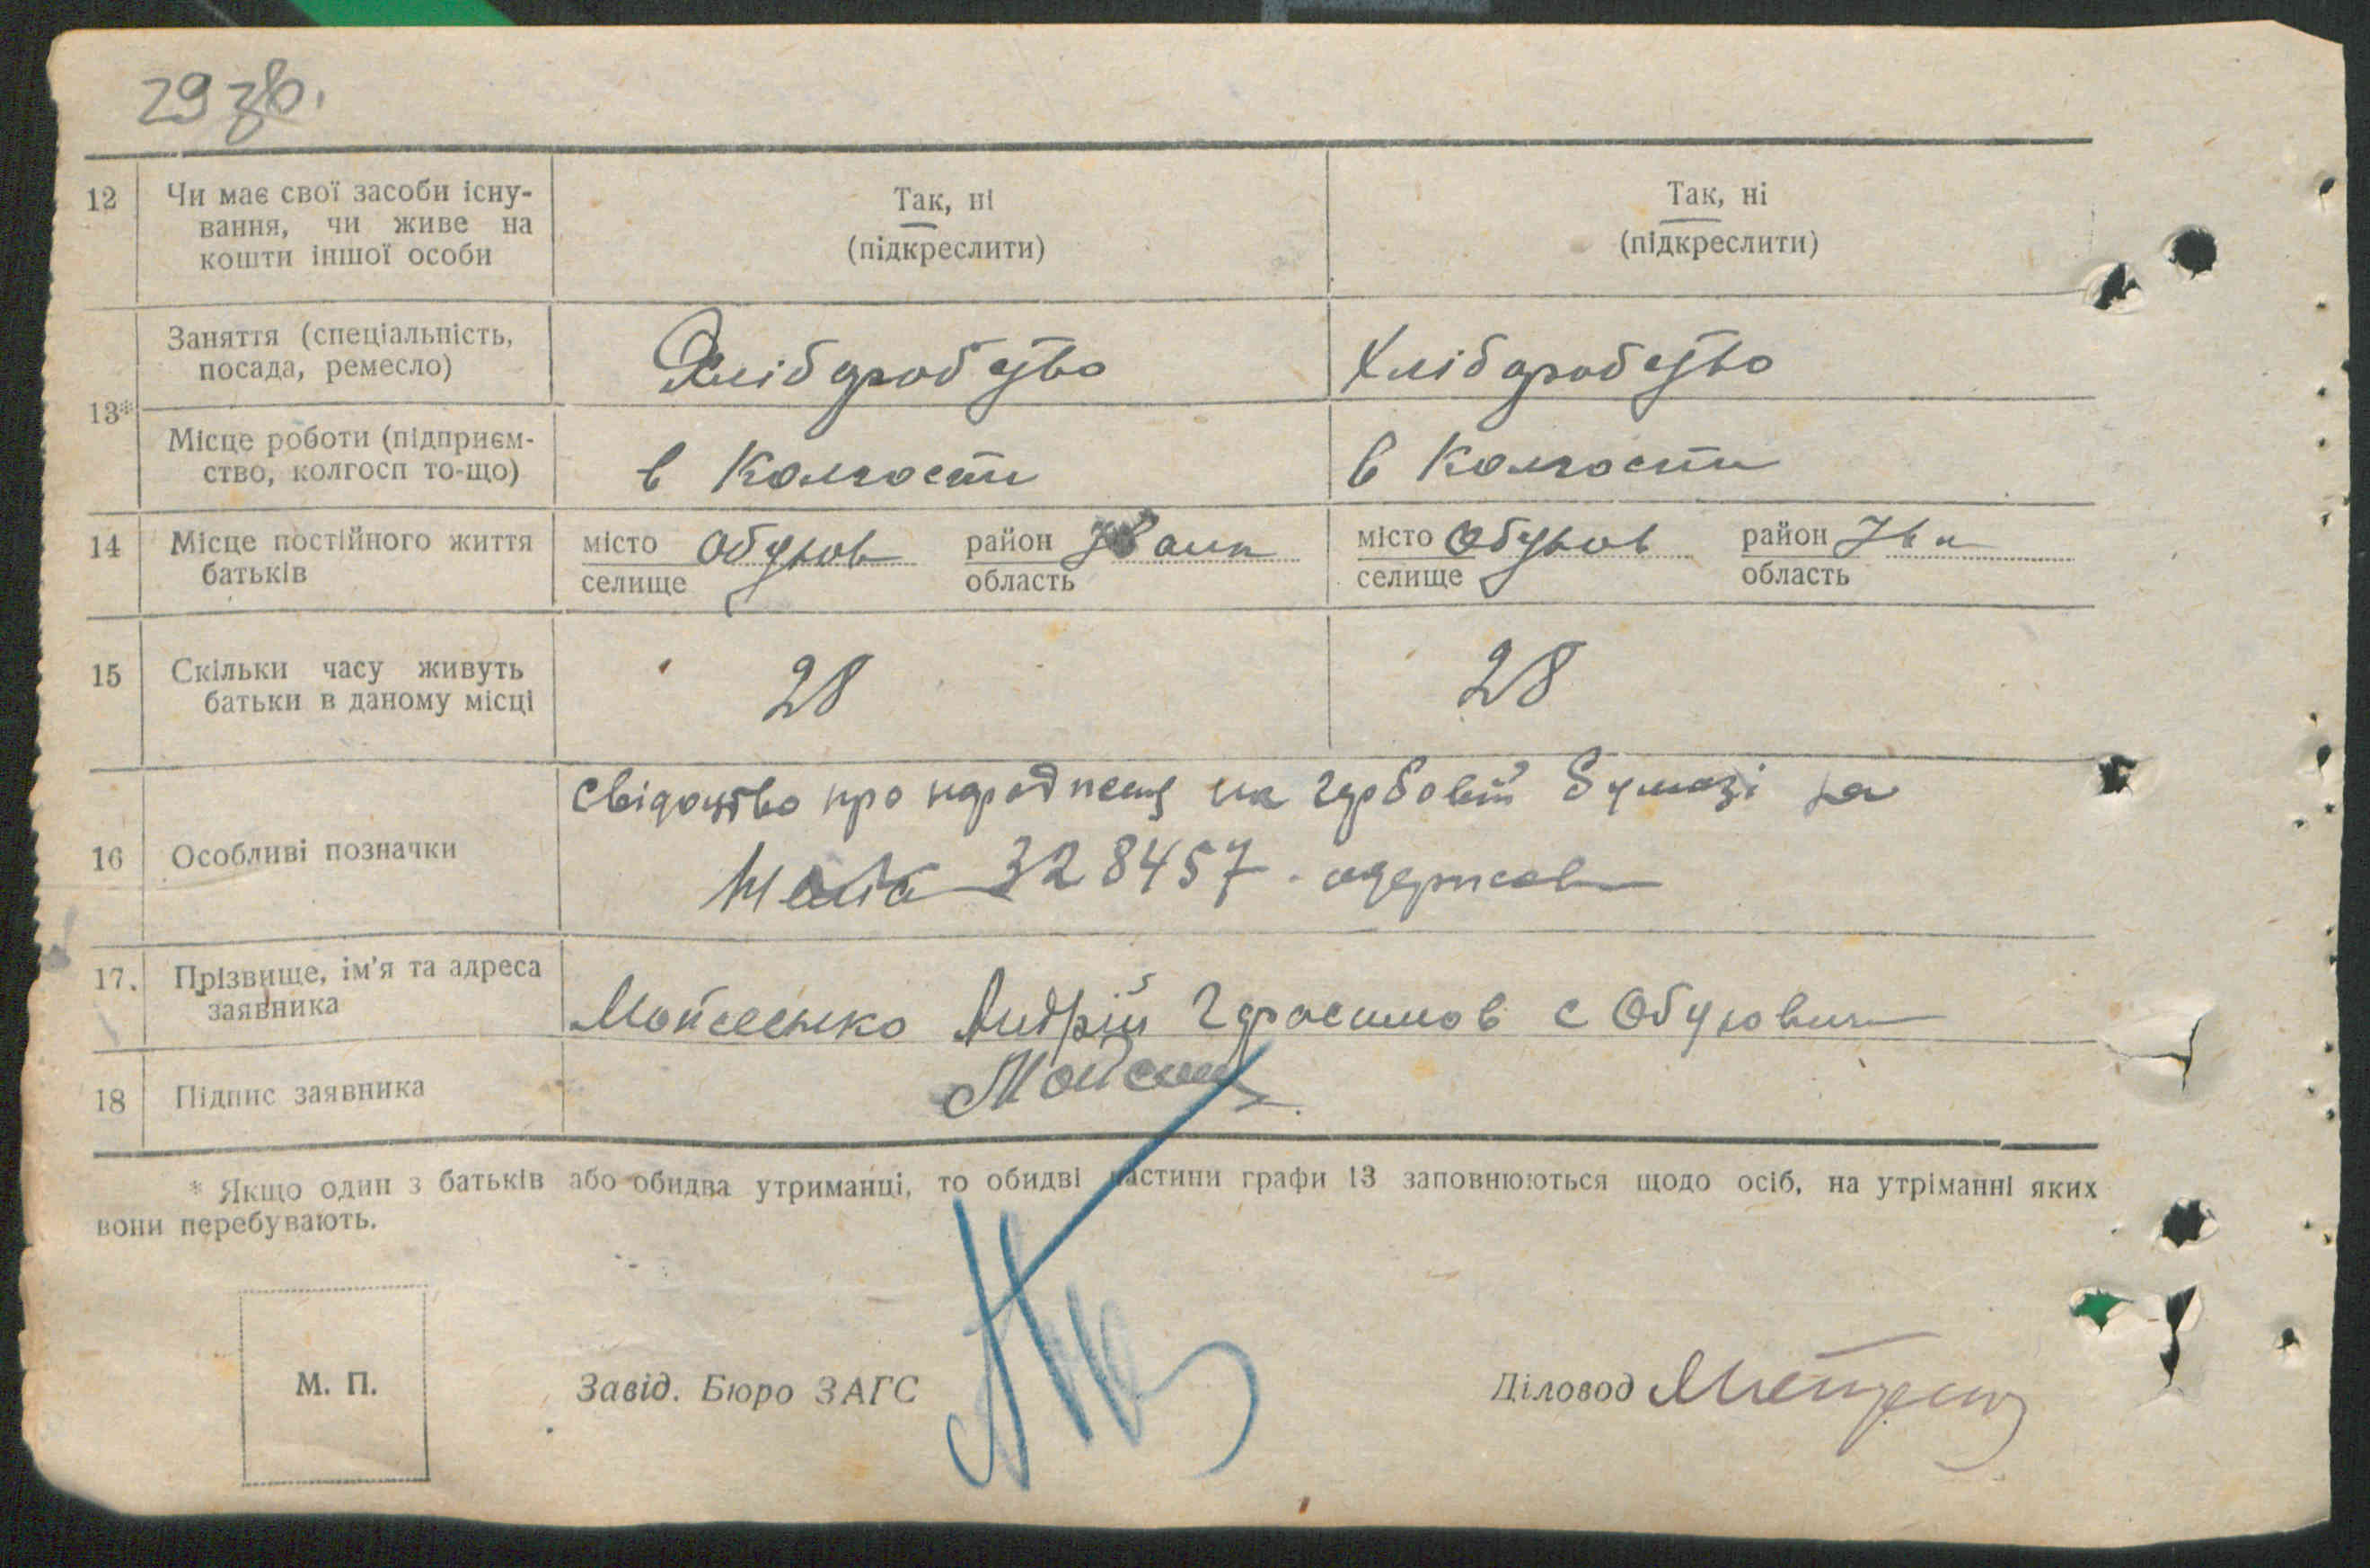 29 зв.
12 Чи має свої засоби існу-
вання, чи живе на
кошти іншої особи
Так, ні
(підкреслити)
Так, ні
(підкреслити)
13*
Заняття (спеціальність,
посада, ремесло)
Хліборобство
Хліборобство
Місце роботи (підприєм-
ство, колгосп то-що)
в Колгоспи
в Колгоспи
14 Місце постійного життя
батьків
місто Обухов район
селище область
місто Обухов район
селище область
15 Скільки часу живуть
батьки в даному місці
28
28
16 Особливі позначки
свідоцтво про на гербовій бумазі за
328457 одержав
17. Прізвище, ім'я та адреса
заявника
Мойсеенко Андрій Герасимов с
18 Підпис заявника
* Якщо один з батьків або обидва утриманці, то обидві частини графи 13 заповнюються щодо осіб, на утріманні яких
вони перебувають.
М. П.
Завід. Бюро ЗАГС
Діловод